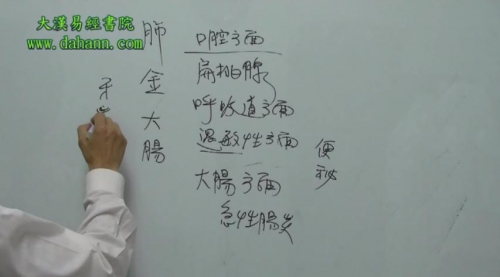 大漢易經書院
www.dahann.com
肺金大腸
口腔方面
扁桃腺
呼吸道方面
過敏性方面
大腸方面
急性腸炎
便秘
牙